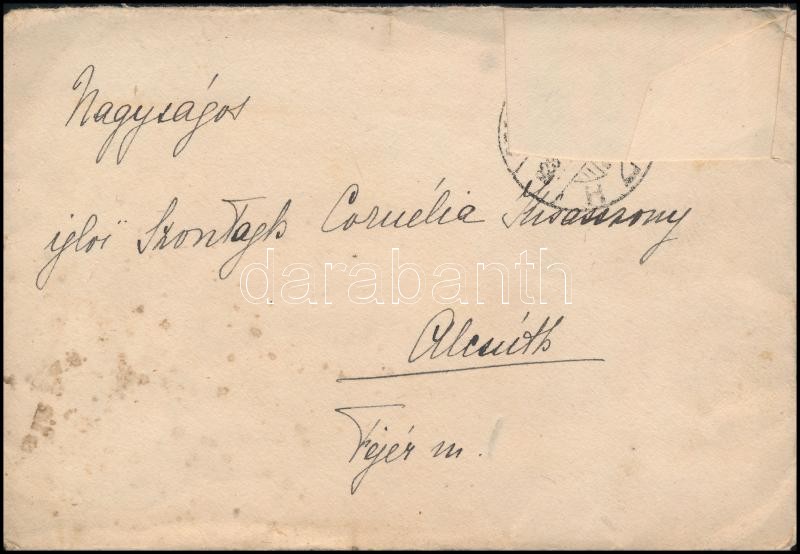 Nagyságos
iglói Szontagh Cornélia Kisasszony
darabanth
Alcsúth
Fejér m.